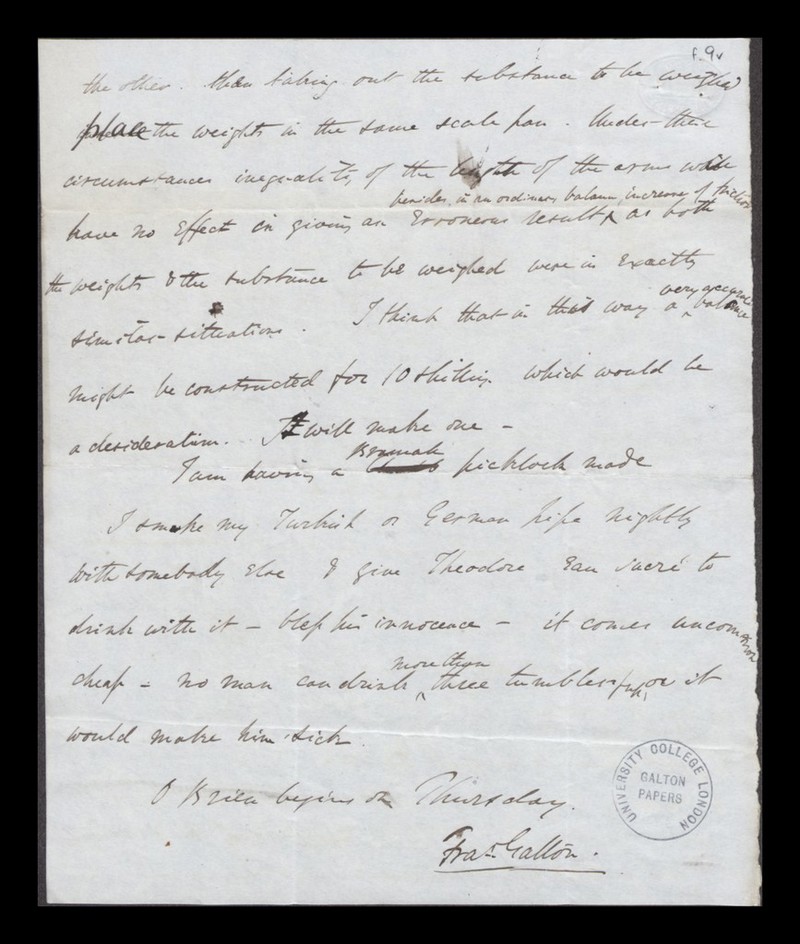 f. 9v
the other. then taking out the substance to be weighed
place the weights in the same scale pan. Under these
circumstances inequality of the length of the arms will
besides, in an ordinary balance, increase of friction
have no Effect in giving an Erroneous result, as both
the weights & the substance to be weighed were in Exactly
very accurate
similar situations. I think that in this way a balance
might be constructed for 10 shillings which would be
a desideratum. I will make one -
Bramah
I am having a picklock made
I smoke my Turkish or German pipe nightly
with somebody Else & give Theodore Eau sucré to
drink with it - bless his innocence - it comes uncommon
cheap - no man can drink more than three tumblers full, or it
would make him sick.
O Brien begins on Thursday.
Fras Galton.
UNIVERSITY COLLEGE LONDON
GALTON
PAPERS